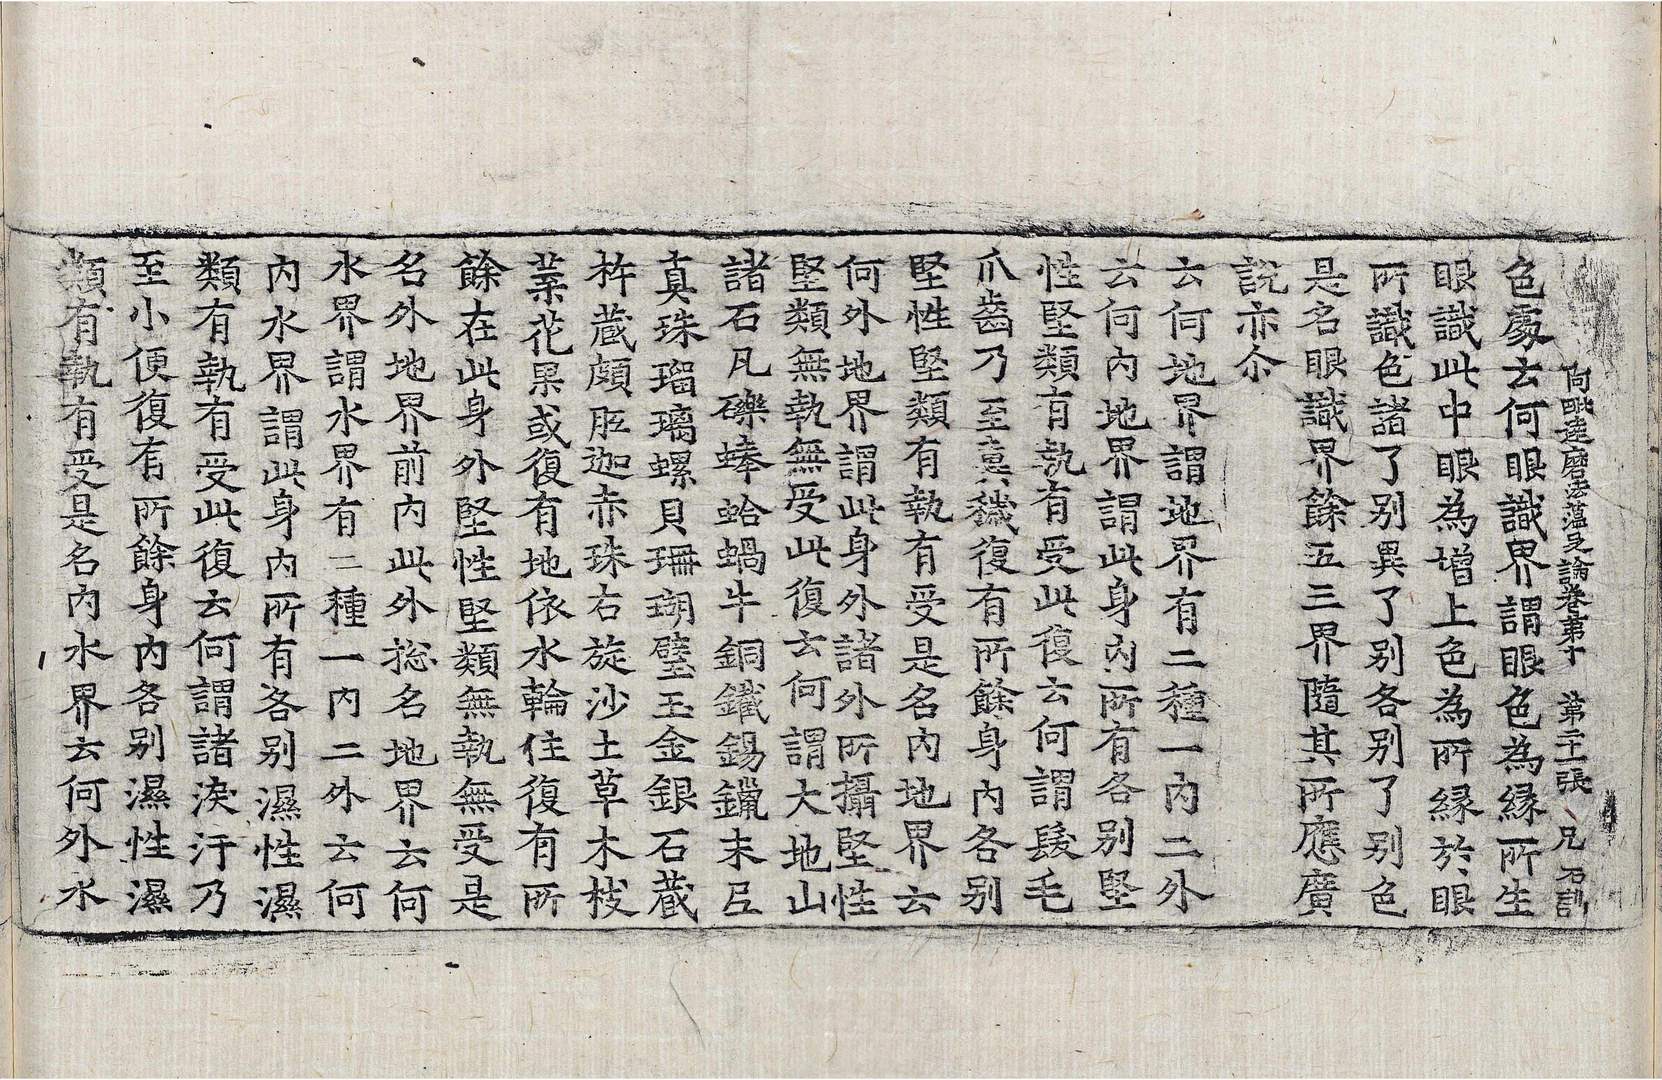 阿毗達磨法蘊足論卷第十　第二十二張　兄　石訓
色處云何眼識界謂眼色為緣所生
眼識此中眼為增上色為所緣於眼
所識色諸了別異了別各別了別色
是名眼識界餘五三界隨其所應廣
說亦尒
云何地界謂地界有二種一內二外
云何內地界謂此身內所有各別堅
性堅類有執有受此復云何謂髮毛
爪齒乃至糞穢復有所餘身內各別
堅性堅類有執有受是名內地界云
何外地界謂此身外諸外所攝堅性
堅類無執無受此復云何謂大地山
諸石凡礫蜯蛤蝸牛銅鐵錫鑞末尼
真珠瑠璃螺貝珊瑚璧玉金銀石藏
杵藏頗胝迦赤珠右旋沙土草木枝
葉花果或復有地依水輪住復有所
餘在此身外堅性堅類無執無受是
名外地界前內此外捴名地界云何
水界謂水界有二種一內二外云何
內水界謂此身內所有各別濕性濕
類有執有受此復云何謂諸淚汗乃
至小便復有所餘身內各別濕性濕
類有執有受是名內水界云何外水